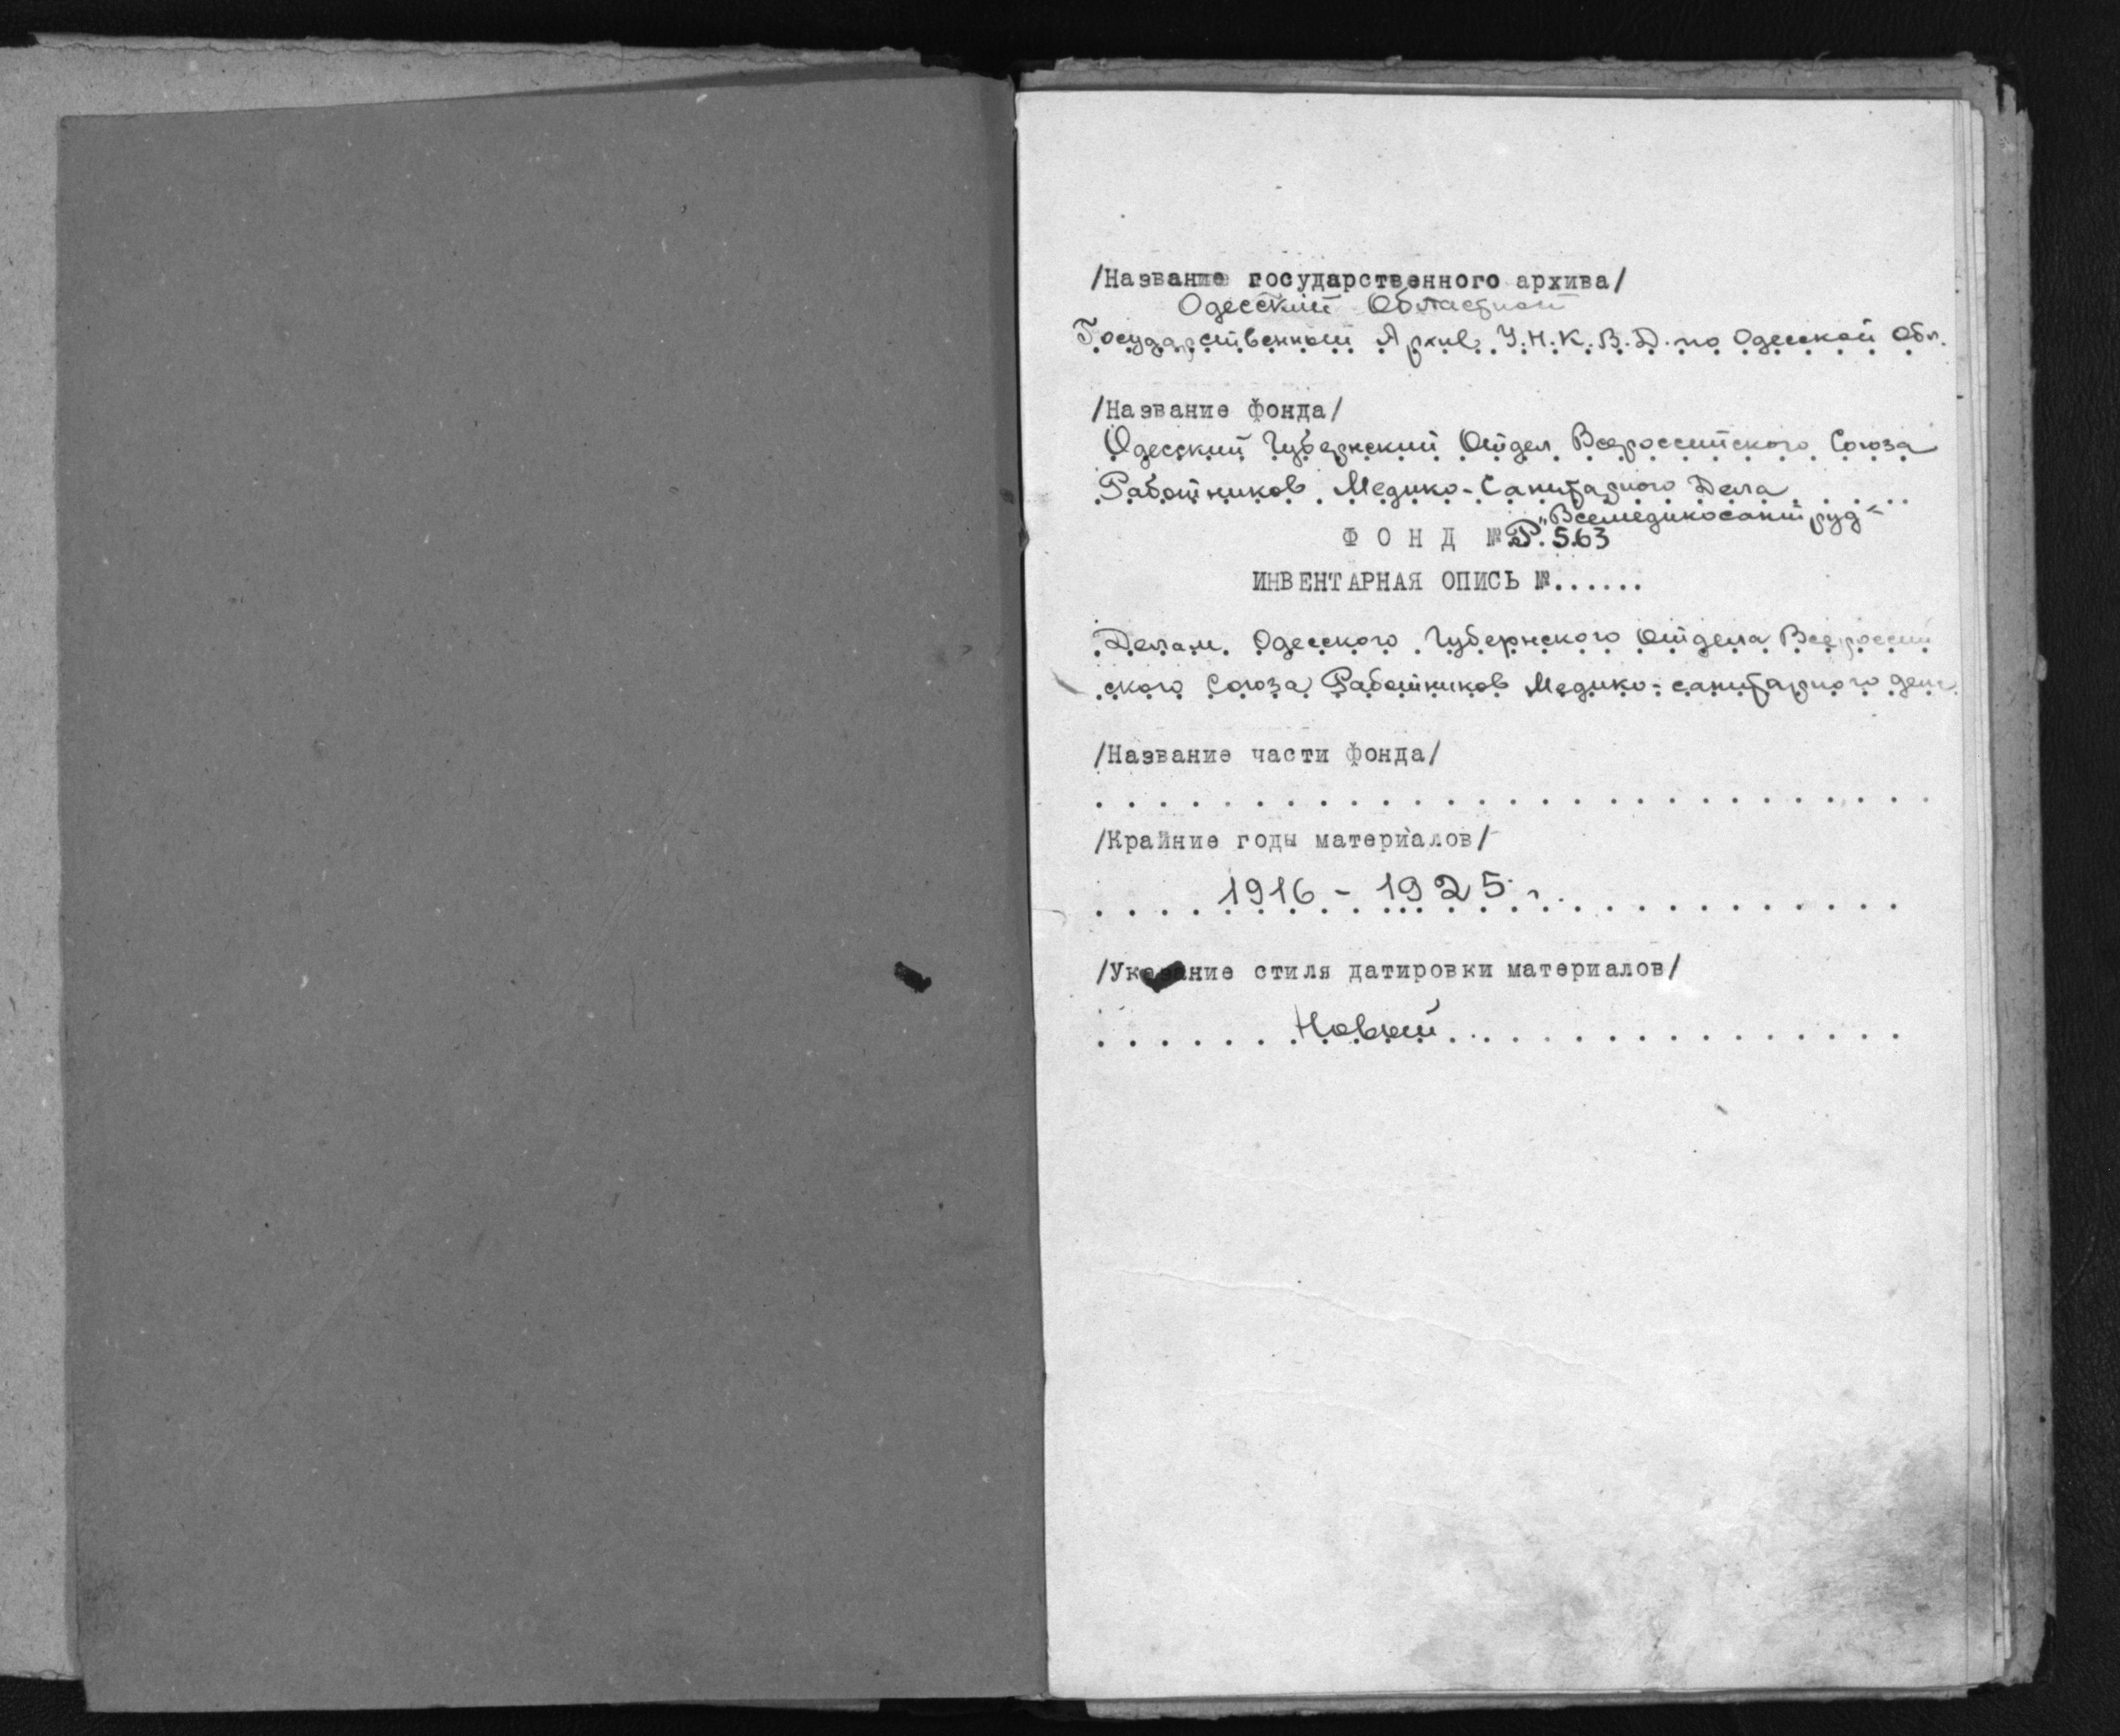 /Название государственного архива/
Одесский Областной
Государственный Архив У.Н.К.В.Д. по Одесской Обл.
/Название фонда/
Одесский Губернский Отдел Всероссийского Союза
Работников Медико-Санитарного Дела
„Всемедикосантруд“
ФОНД № Р. 563
ИНВЕНТАРНАЯ ОПИСЬ №......
Делам Одесского Губернского Отдела Всероссий
ского Союза Работников Медико-санитарного дела
/Название части фонда/
/Крайние годы материалов/
1916 - 1925 г.
/Указание стиля датировки материалов/
Новый